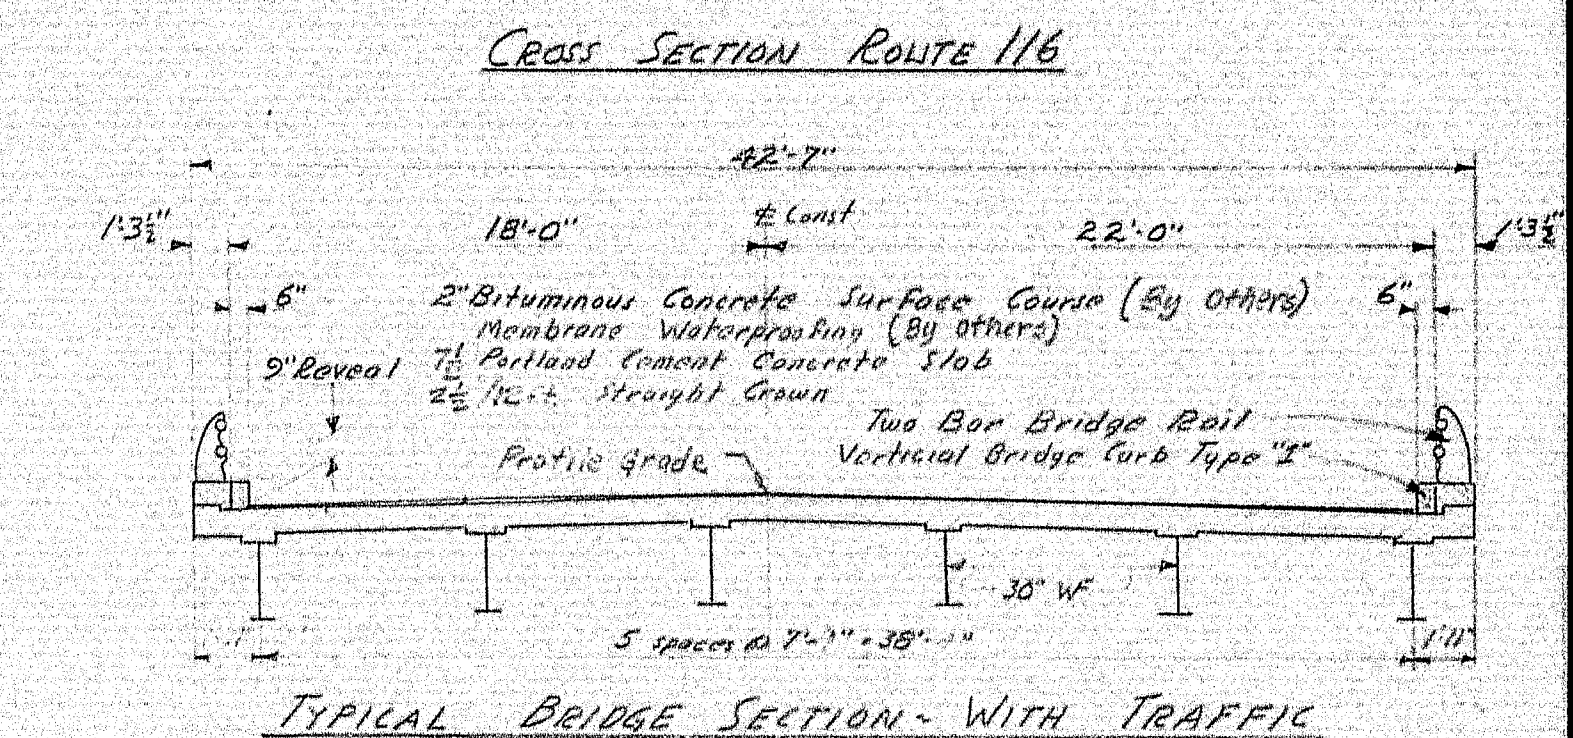 CROSS SECTION ROUTE 116
42'-7"
1'-3½"
18'-0"
℄ Const
22'-0"
1'3½"
6"
2" Bituminous Concrete Surface Course (By Others)
6"
Membrane Waterproofing (By Others)
9" Reveal
7½ Portland Cement Concrete Slab
2½ Straight Crown
Two Bar Bridge Rail
Profile Grade
Verticial Bridge Curb Type "I"
30" WF
5 spaces @
1'11"
TYPICAL BRIDGE SECTION - WITH TRAFFIC